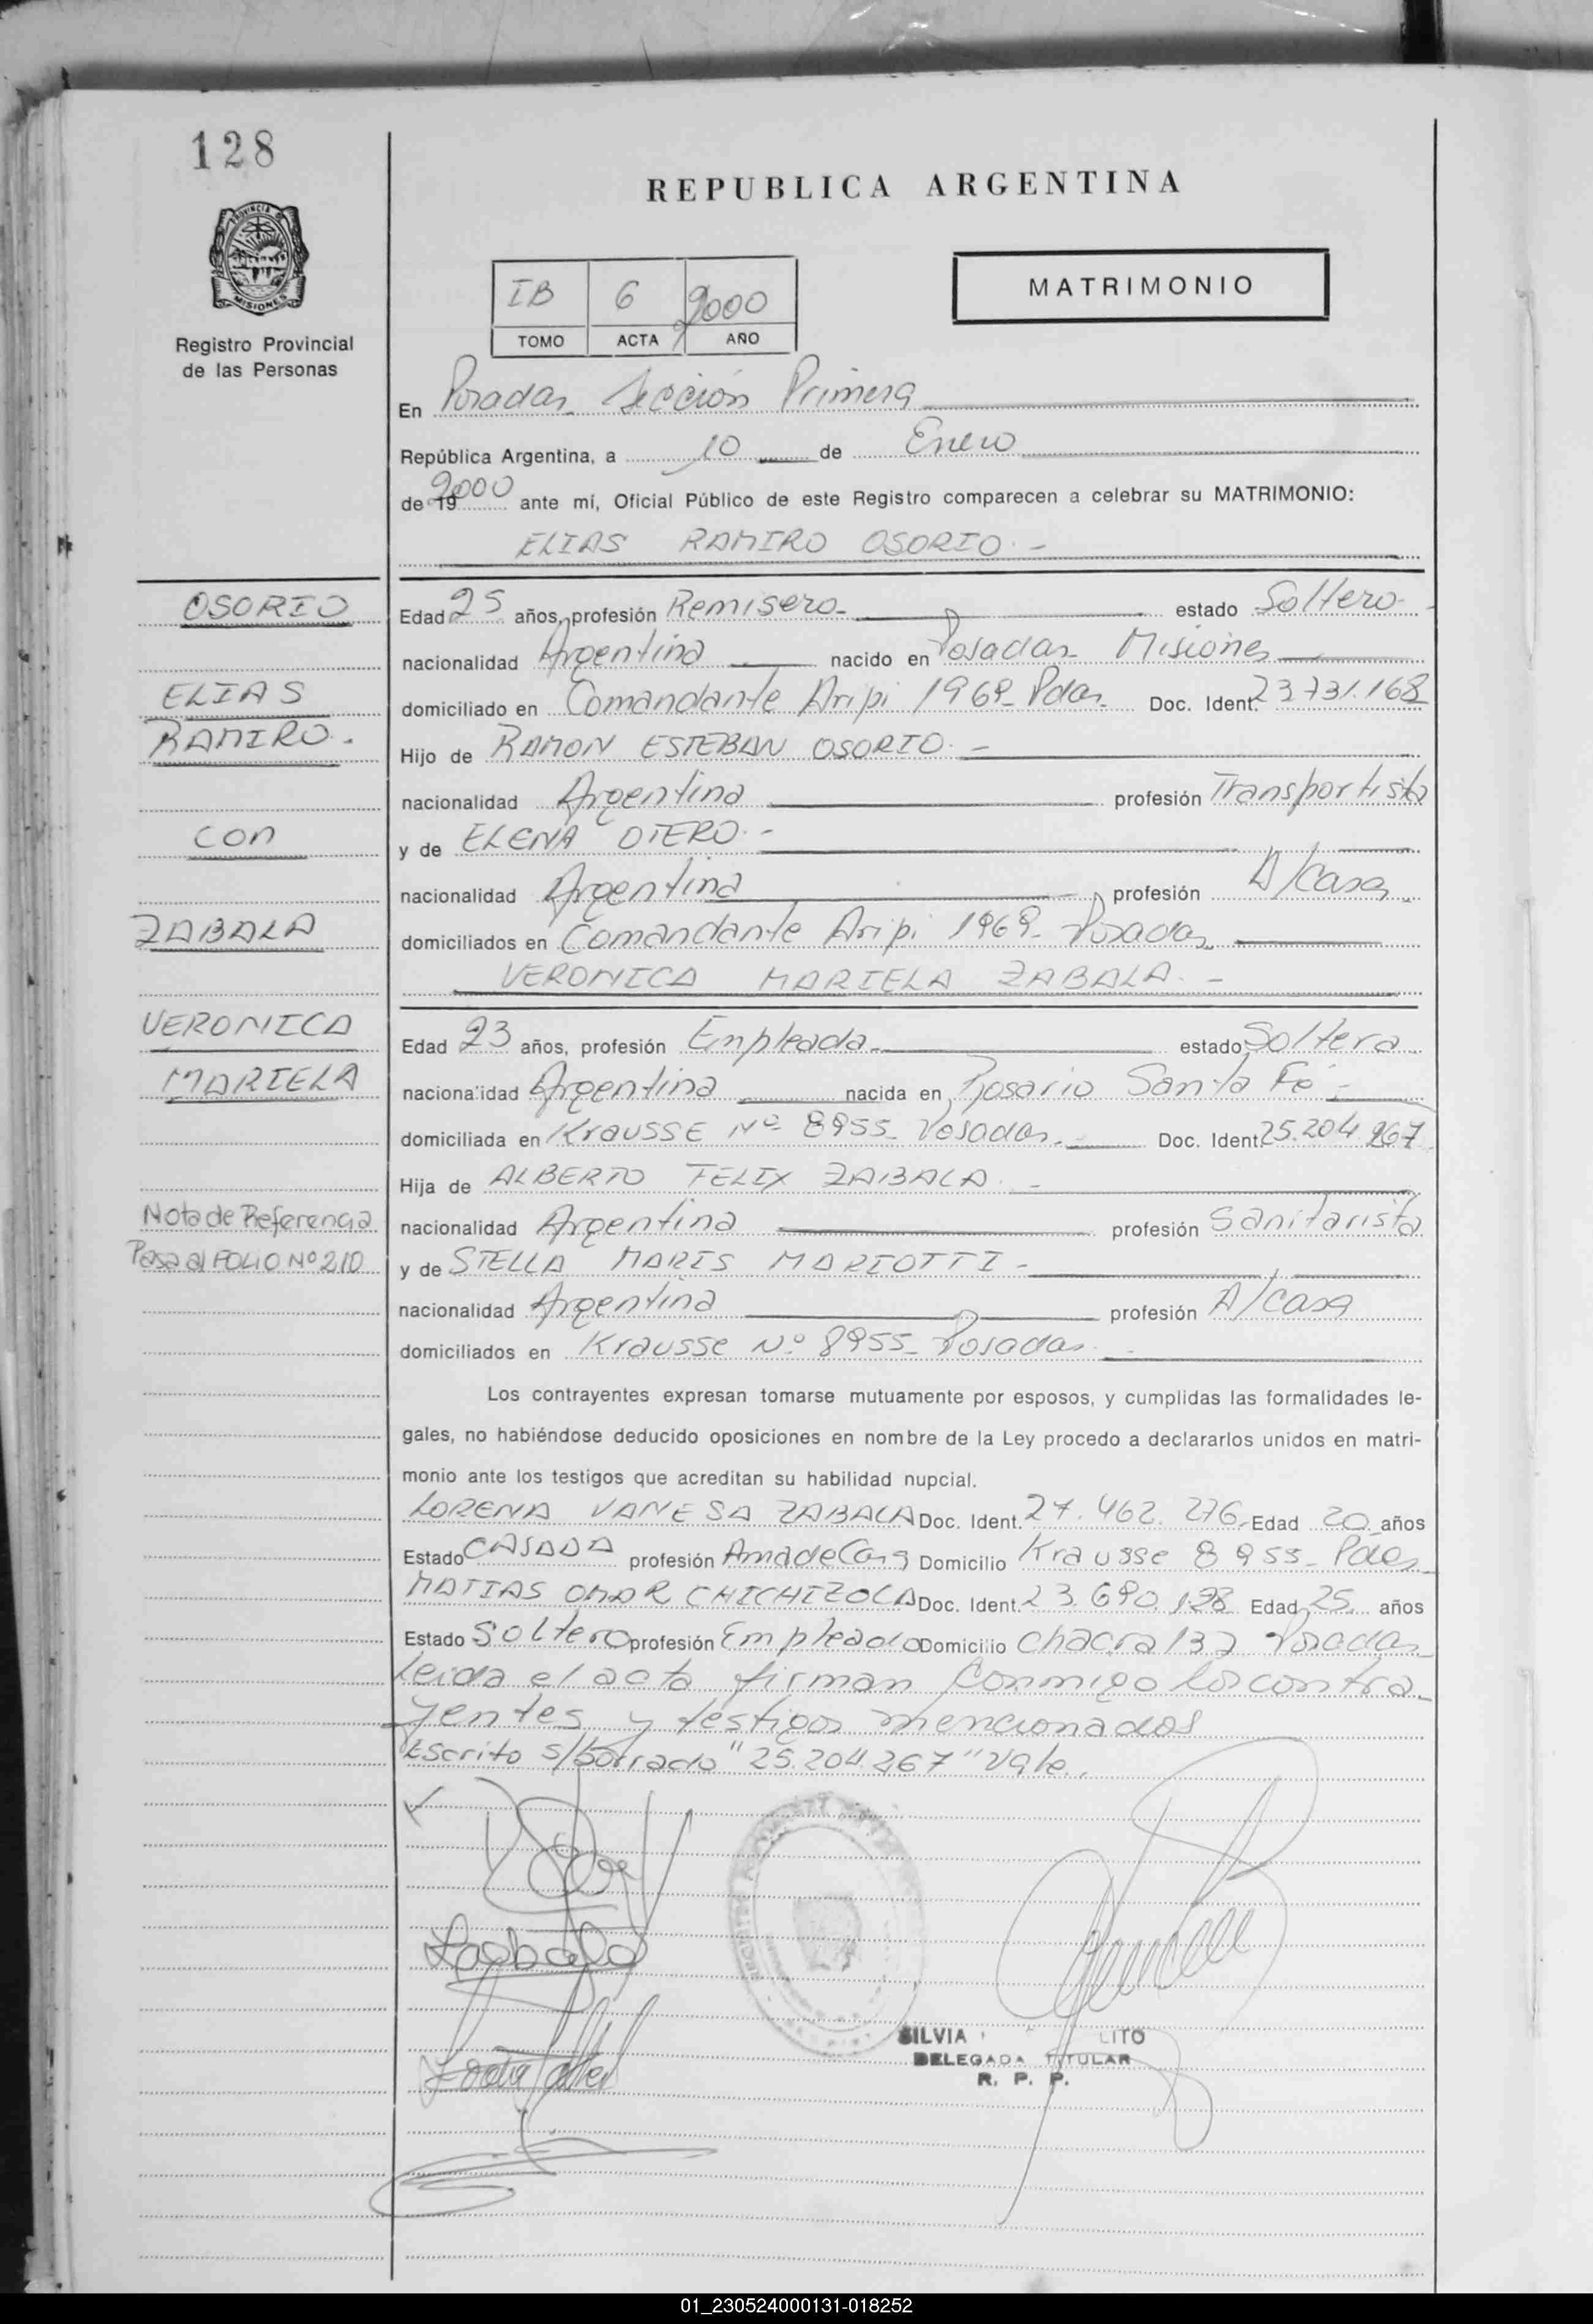 128
REPUBLICA ARGENTINA
PROVINCIA DE
MISIONES
Registro Provincial
de las Personas
IB 6 2000
TOMO ACTA AÑO
MATRIMONIO
En Posadas Sección Primera
República Argentina, a 10 de Enero
de 19 2000 ante mí, Oficial Público de este Registro comparecen a celebrar su MATRIMONIO:
ELIAS RAMIRO OSORIO.-
OSORIO
ELIAS
RAMIRO.
con
ZABALA
VERONICA
MARIELA
Nota de Referencia
Pasa al FOLIO Nº 210
Edad 25 años, profesión Remisero- estado Soltero-
nacionalidad Argentina nacido en Posadas Misiones
domiciliado en Comandante Aripi 1969- Pdas. Doc. Ident. 23.731.168
Hijo de RAMON ESTEBAN OSORIO.-
nacionalidad Argentina profesión Transportista
y de ELENA OTERO.-
nacionalidad Argentina profesión A/casa
domiciliados en Comandante Aripi 1969- Posadas
VERONICA MARIELA ZABALA.-
Edad 23 años, profesión Empleada- estado Soltera
nacionalidad Argentina nacida en Rosario Santa Fé-
domiciliada en Krausse Nº 8955- Posadas.- Doc. Ident. 25.204.267
Hija de ALBERTO FELIX ZABALA.-
nacionalidad Argentina profesión Sanitarista
y de STELLA MARIS MARIOTTI-
nacionalidad Argentina profesión A/casa
domiciliados en Krausse Nº 8955- Posadas.
Los contrayentes expresan tomarse mutuamente por esposos, y cumplidas las formalidades le-
gales, no habiéndose deducido oposiciones en nombre de la Ley procedo a declararlos unidos en matri-
monio ante los testigos que acreditan su habilidad nupcial.
LORENA VANESA ZABALA Doc. Ident. 27.462.276- Edad 20 años
Estado CASADA profesión Ama de Casa Domicilio Krausse 8955- Pdas
MATIAS OMAR CHICHIZOLA Doc. Ident. 23.690.128 Edad 25 años
Estado Soltero profesión Empleado Domicilio chacra 132 Posadas
Leida el acta firman conmigo los contra
yentes y testigos mencionados
Escrito s/borrado "25.204.267" Vale.
SILVIA LITO
DELEGADA TITULAR
R. P. P.
01_230524000131-018252